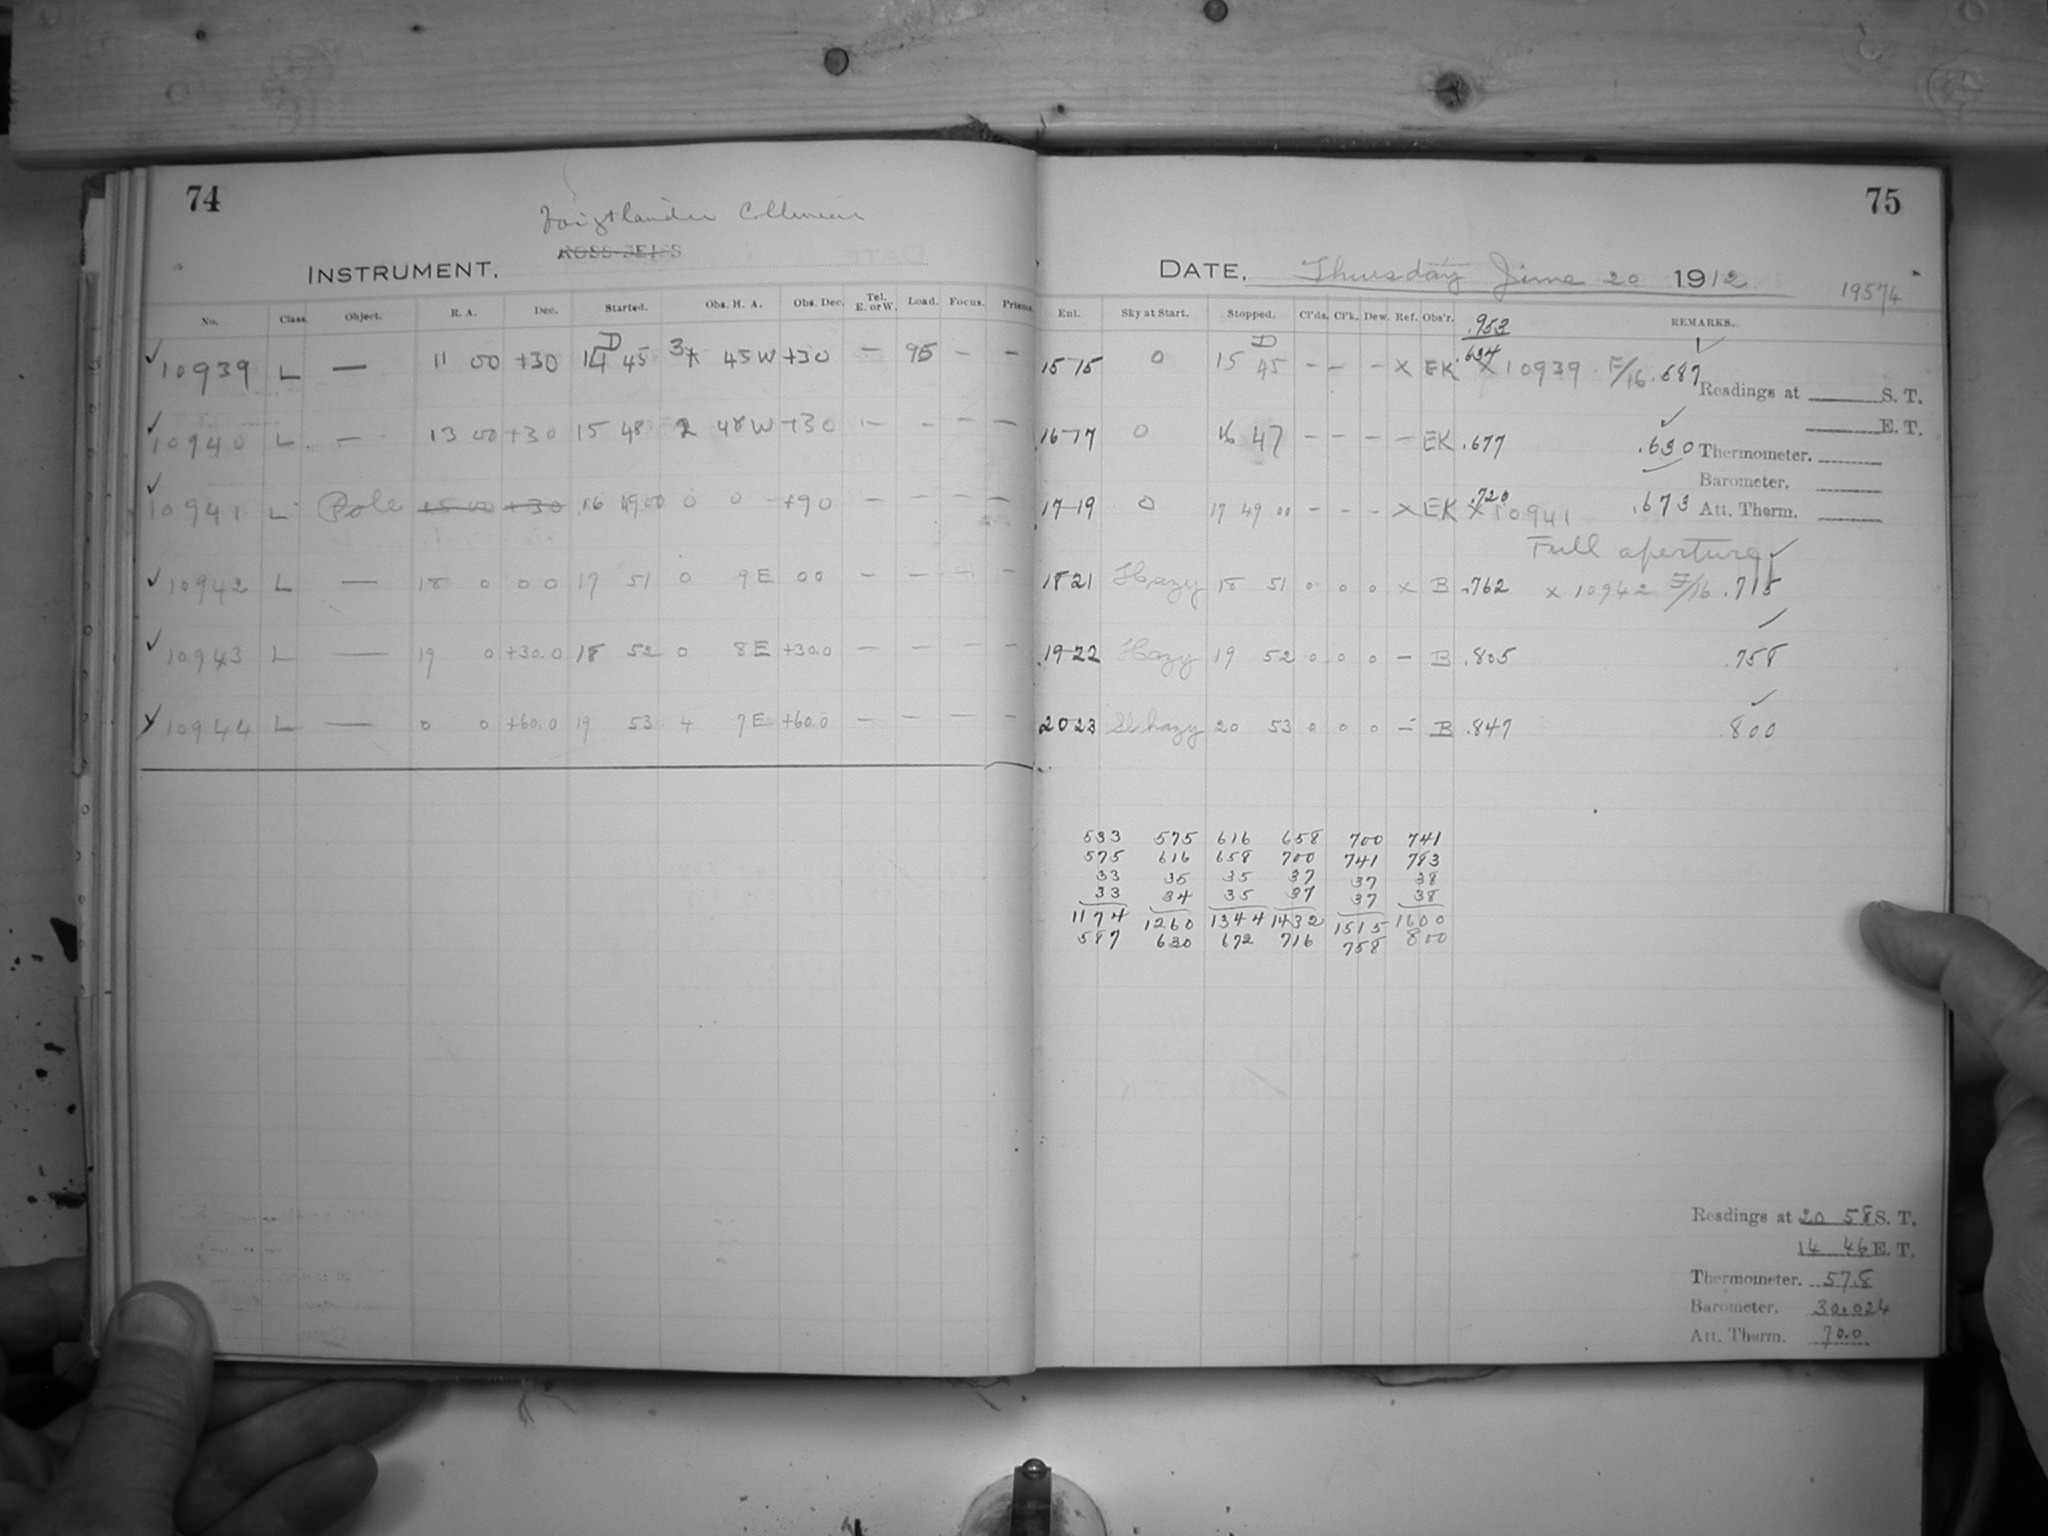 74
Voigtlander Collinear
ROSS-ZEISS
INSTRUMENT.
No. Class. Object. R. A. Dec. Started. Obs. H. A. Obs. Dec. Tel. E. or W. Load. Focus. Prisms.
10939 L — 11 00 +30 14 45 3 45 W +30 — 95 — —
10940 L — 13 00 +30 15 48 2 48 W +30 — — — —
10941 L Pole 15 00 +30 16 49 00 0 0 +90 — — — —
10942 L — 18 0 0 0 17 51 0 9 E 00 — — — —
10943 L — 19 0 +30.0 18 52 0 8 E +30.0 — — — —
10944 L — 0 0 +60.0 19 53 4 7 E +60.0 — — — —
75
DATE. Thursday June 20 1912
19574
Enl. Sky at Start. Stopped. Cl'ds. Cl'k. Dew. Ref. Obs'r. .953 REMARKS.
15 15 0 15 45 — — — X EK .634 X 10939 F/16 .587
Readings at S. T.
E. T.
16-17 0 16 47 — — — — EK .677 .630
Thermometer.
Barometer.
17-19 0 17 49 00 — — — X EK .720 X 10941 .673
Att. Therm.
Full aperture
18 21 Hazy 18 51 0 0 0 x B .762 x 10942 F/16 .715
19-22 Hazy 19 52 0 0 0 — B .805 .758
20 23 Sl. hazy 20 53 0 0 0 — B .847 .800
533 575 616 658 700 741
575 616 658 700 741 783
33 35 35 37 37 38
33 34 35 37 37 38
1174 1260 1344 1432 1515 1600
587 630 672 716 758 800
Readings at 20 58 S. T.
14 46 E. T.
Thermometer. 57.8
Barometer. 30.024
Att. Therm. 70.0